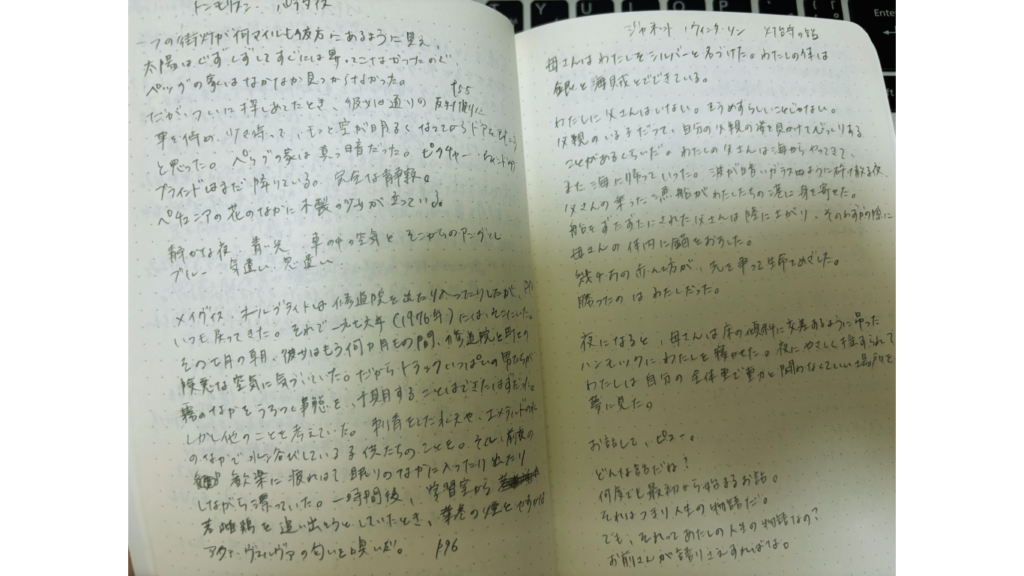 トニ・モリスン パラダイス
一つの街灯が何マイルも彼方にあるように見え、
太陽はぐずぐずしてすぐには昇ってこなかったので
ペッグの家はなかなか見つからなかった。
だがついに探しあてたとき、彼女は通りの反対側に
P55
車を停め、少々待って、もっと空が明るくなってからドアをたたこう
と思った。ペッグの家は真っ暗だった。ピクチャー・ウィンドウの
ブラインドはまだ降りている。完全な静寂。
ペチュニアの花のなかに木製の少女が立っている。
静かな夜 青い光 車の中の空気と そこからのアングル
ブルー 気遣い 思遣い
メイヴィス・オールブライトは修道院を出たり入ったりしたが、
いつも戻ってきた。それで一九七六年(1976年)には、そこにいた。
その七月の朝、彼女はもう何カ月もの間、修道院と町との
険悪な空気に気づいていた。だからトラックいっぱいの男たちが
霧のなかをうろつく事態を、予期することはできたはずだ。
しかし他のことを考えていた。刺青をした水夫や、エメラルドの水
のなかで水浴びしている子供たちのことを。そして、前夜の
歓楽に疲れはて眠りのなかに入ったり出たり
しながら漂っていた。一時間後、学習室から
若雌鶏を追い出そうとしていたとき、葉巻の煙とかすかな
アクア・ヴェルヴァの匂いを嗅いだ。 P96
ジャネット・ウィンターソン 灯台守の話
母さんはわたしをシルバーと名づけた。わたしの体は
銀と海賊とでできている。
わたしに父さんはいない。そうめずらしいことじゃない。
父親のいる子だって、自分の父親の姿を見かけてびっくりする
ことがあるくらいだ。わたしの父さんは海からやってきて、
また海に帰っていった。波が暗いガラスのように砕け散る夜、
父さんの乗った漁船がわたしたちの港に身を寄せた。
船をずたずたにされた父さんは陸に上がり、そのわずかな隙に
母さんの体内に錨をおろした。
幾千もの赤ん坊が、先を争って生命をめざした。
勝ったのはわたしだった。
夜になると、母さんは床の傾斜に交差するように吊った
ハンモックにわたしを寝かせた。夜にやさしく揺すられて
わたしは自分の全体重で重力と闘わなくていい場所を
夢に見た。
お話して、ピュー。
どんな話だね?
何度でも最初から始まるお話。
それはつまり人生の物語だ。
でも、それってあたしの人生の物語なの?
お前さんが語りさえすればな。